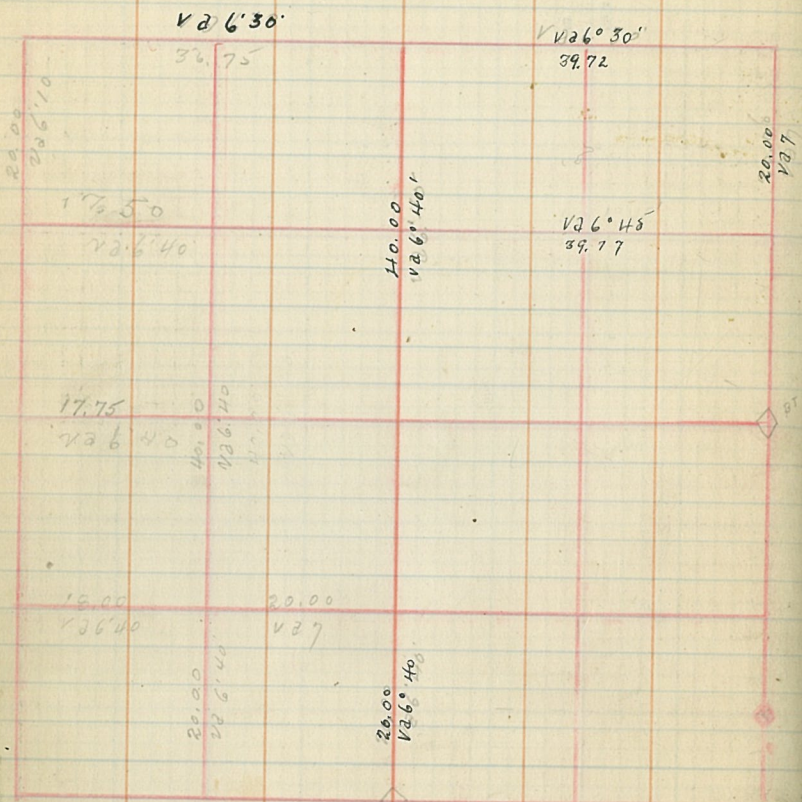 va 6°30'
va 6° 30'
37.75
39.72
20.00
va 6.10
20.00
va 7
17.50
va 6.40
40.00
va 6° 40'
va 6° 45
39.77
17.75
va 6 40
40.00
va 6.40
18.00
va 6.40
20.00
va 7
20.00
va 6.40
20.00
va 6° 40